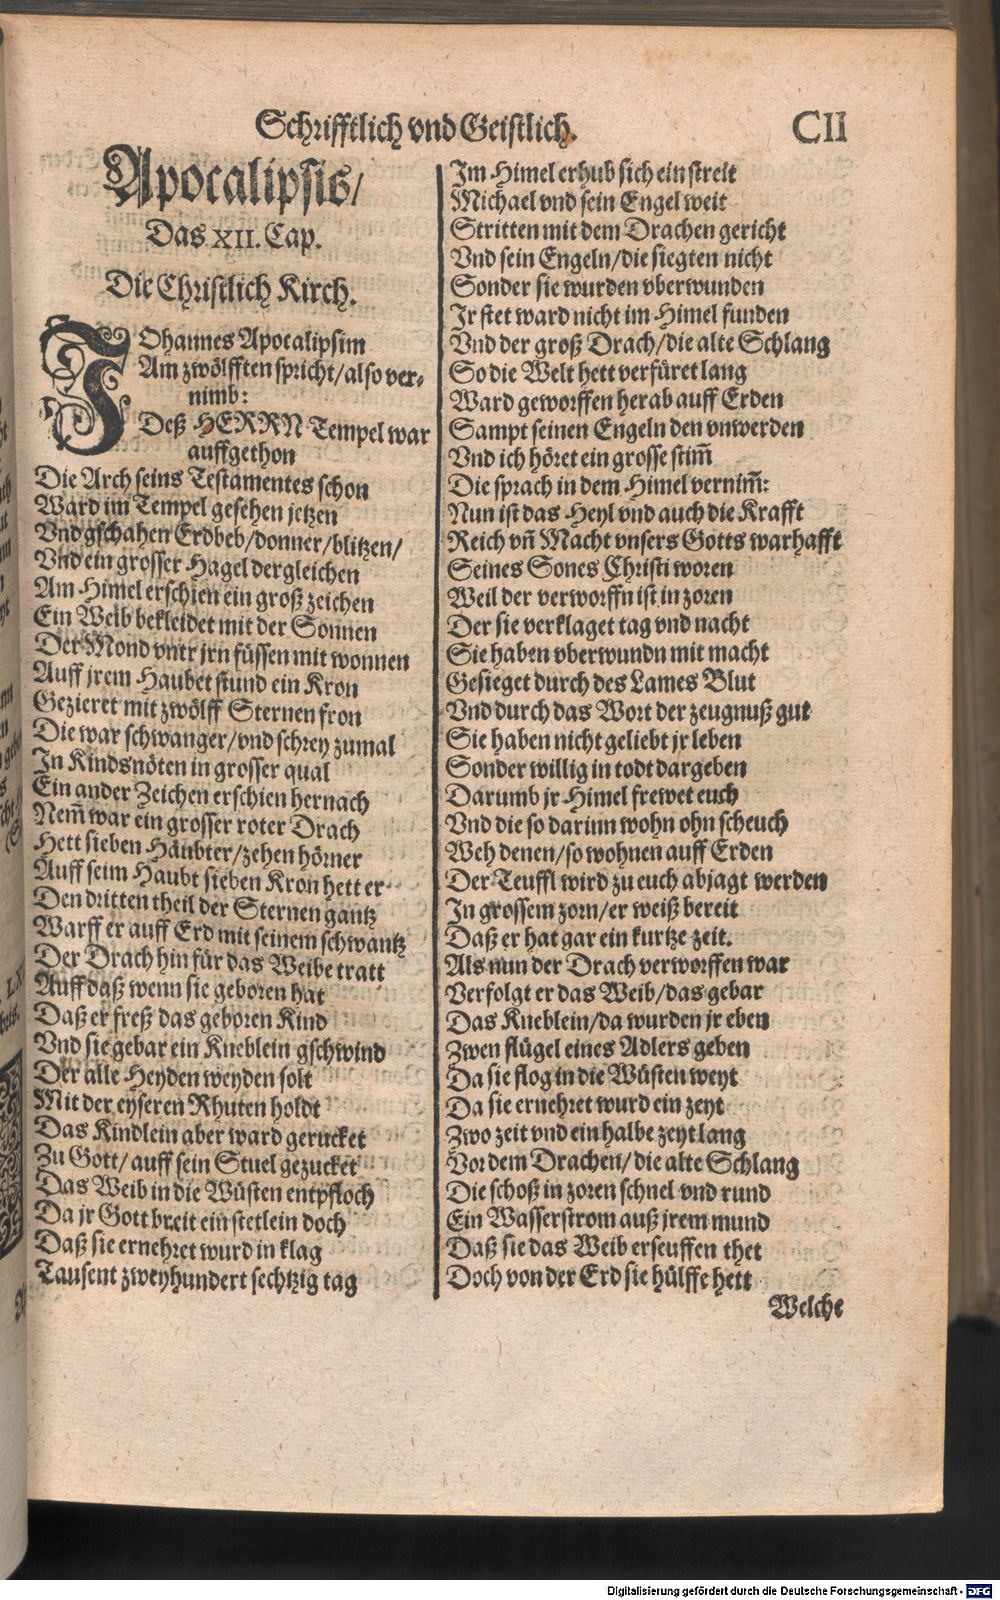 Schrifftlich vnd Geistlich.
CII
Apocalipsis/
Das XII. Cap.
Die Christlich Kirch.
JOhannes Apocalipsim
Am zwölfften spricht/also ver-
nimb:
Deß HERRN Tempel war
auffgethon
Die Arch seins Testamentes schon
Ward im Tempel gesehen jetzen
Vnd gschahen Erdbeb/donner/blitzen/
Vnd ein grosser Hagel dergleichen
Am Himel erschien ein groß zeichen
Ein Weib bekleidet mit der Sonnen
Der Mond vntr jrn füssen mit wonnen
Auff jrem Haubet stund ein Kron
Gezieret mit zwölff Sternen fron
Die war schwanger/vnd schrey zumal
In Kindsnöten in grosser qual
Ein ander Zeichen erschien hernach
Nem̃ war ein grosser roter Drach
Hett sieben Häubter/zehen hörner
Auff seim Haubt sieben Kron hett er
Den dritten theil der Sternen gantz
Warff er auff Erd mit seinem schwantz
Der Drach hin für das Weibe tratt
Auff daß wenn sie geboren hat
Daß er freß das geboren Kind
Vnd sie gebar ein Kneblein gschwind
Der alle Heyden weyden solt
Mit der eyseren Rhuten holdt
Das Kindlein aber ward gerucket
Zu Gott/auff sein Stuel gezucket
Das Weib in die Wüsten entpfloch
Da jr Gott breit ein stetlein doch
Daß sie ernehret wurd in klag
Tausent zweyhundert sechtzig tag
Im Himel erhub sich ein streit
Michael vnd sein Engel weit
Stritten mit dem Drachen gericht
Vnd sein Engeln/die siegten nicht
Sonder sie wurden vberwunden
Ir stet ward nicht im Himel funden
Vnd der groß Drach/die alte Schlang
So die Welt hett verfüret lang
Ward geworffen herab auff Erden
Sampt seinen Engeln den vnwerden
Vnd ich höret ein grosse stim̃
Die sprach in dem Himel vernim̃:
Nun ist das Heyl vnd auch die Krafft
Reich vñ Macht vnsers Gotts warhafft
Seines Sones Christi woren
Weil der verworffn ist in zoren
Der sie verklaget tag vnd nacht
Sie haben vberwundn mit macht
Gesieget durch des Lames Blut
Vnd durch das Wort der zeugnuß gut
Sie haben nicht geliebt jr leben
Sonder willig in todt dargeben
Darumb jr Himel frewet euch
Vnd die so darinn wohn ohn scheuch
Weh denen/so wohnen auff Erden
Der Teuffl wird zu euch abjagt werden
In grossem zorn/er weiß bereit
Daß er hat gar ein kurtze zeit.
Als nun der Drach verworffen war
Verfolgt er das Weib/das gebar
Das Kneblein/da wurden jr eben
Zwen flügel eines Adlers geben
Da sie flog in die Wüsten weyt
Da sie ernehret wurd ein zeyt
Zwo zeit vnd ein halbe zeyt lang
Vor dem Drachen/die alte Schlang
Die schoß in zoren schnel vnd rund
Ein Wasserstrom auß jrem mund
Daß sie das Weib erseuffen thet
Doch von der Erd sie hülffe hett
Welche
Digitalisierung gefördert durch die Deutsche Forschungsgemeinschaft - DFG